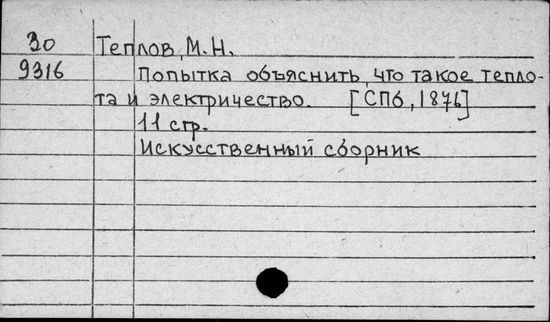 30 Теплов, М.Н.
9316 Попытка объяснить, что такое тепло-
та и электричество. [СПб, 1876]
11 стр.
Искусственный сборник